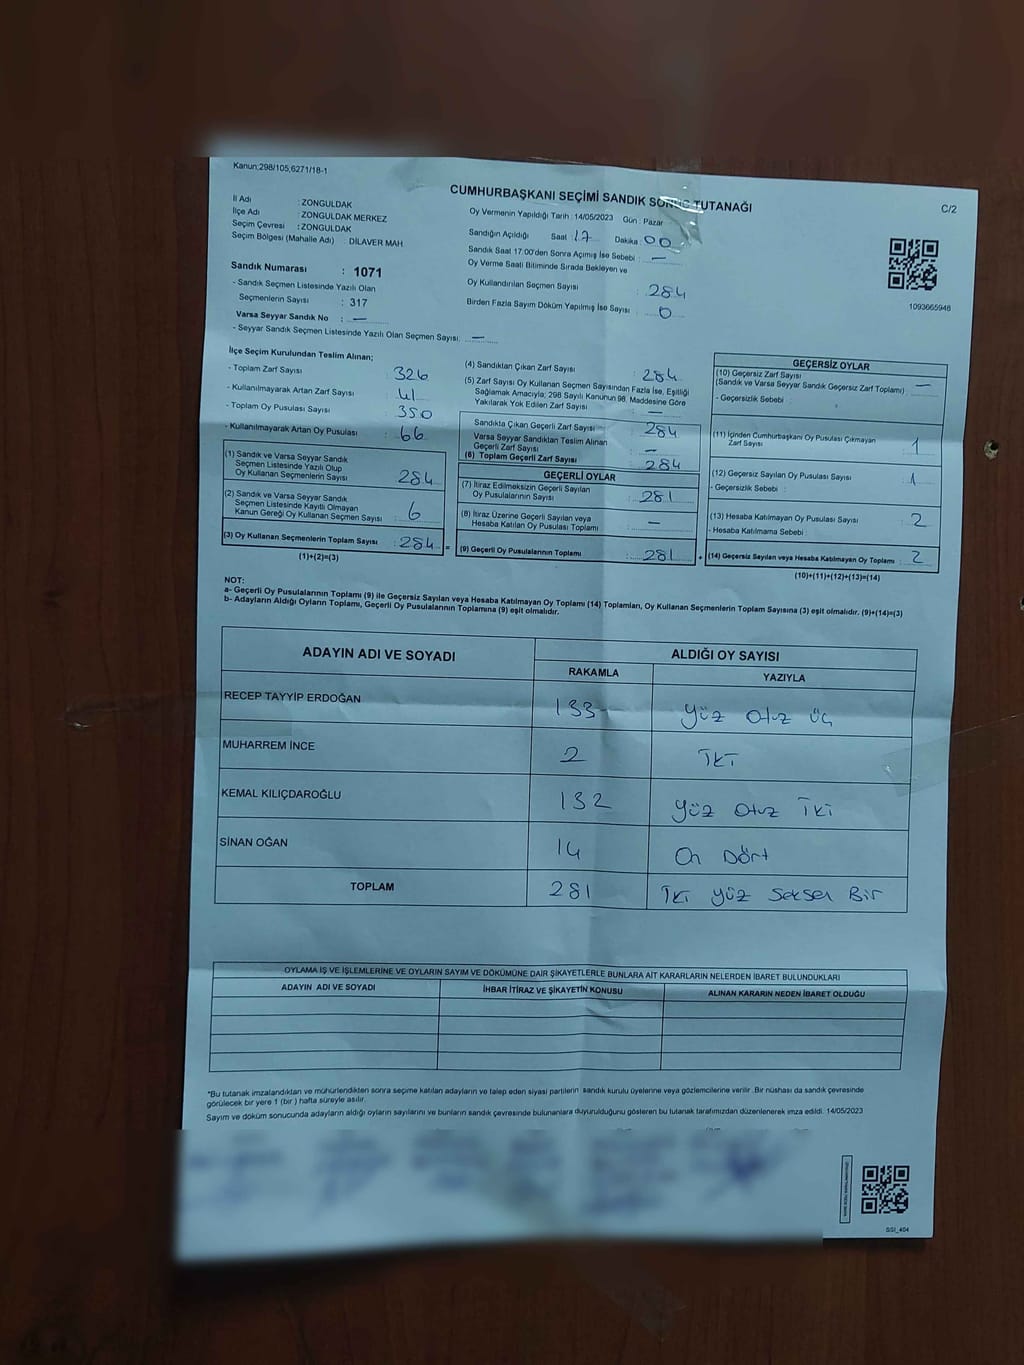 Kanun;298/105,6271/18-1
CUMHURBAŞKANI SEÇİMİ SANDIK SONUÇ TUTANAĞI
C/2
İl Adı : ZONGULDAK
İlçe Adı : ZONGULDAK MERKEZ
Seçim Çevresi : ZONGULDAK
Seçim Bölgesi (Mahalle Adı) : DİLAVER MAH.
Sandık Numarası : 1071
- Sandık Seçmen Listesinde Yazılı Olan
Seçmenlerin Sayısı : 317
Varsa Seyyar Sandık No : —
- Seyyar Sandık Seçmen Listesinde Yazılı Olan Seçmen Sayısı: —
Oy Vermenin Yapıldığı Tarih : 14/05/2023 Gün : Pazar
Sandığın Açıldığı Saat : 17 Dakika : 00
Sandık Saat 17:00'den Sonra Açımış İse Sebebi : —
Oy Verme Saati Bitiminde Sırada Bekleyen ve
Oy Kullandırılan Seçmen Sayısı : 284
Birden Fazla Sayım Döküm Yapılmış İse Sayısı : 0
1093665946
İlçe Seçim Kurulundan Teslim Alınan;
- Toplam Zarf Sayısı : 326
- Kullanılmayarak Artan Zarf Sayısı : 41
- Toplam Oy Pusulası Sayısı : 350
- Kullanılmayarak Artan Oy Pusulası : 66
(1) Sandık ve Varsa Seyyar Sandık
Seçmen Listesinde Yazılı Olup
Oy Kullanan Seçmenlerin Sayısı : 284
(2) Sandık ve Varsa Seyyar Sandık
Seçmen Listesinde Kayıtlı Olmayan
Kanun Gereği Oy Kullanan Seçmen Sayısı : 6
(3) Oy Kullanan Seçmenlerin Toplam Sayısı : 284 =
(1)+(2)=(3)
(4) Sandıktan Çıkan Zarf Sayısı : 284
(5) Zarf Sayısı Oy Kullanan Seçmen Sayısından Fazla İse, Eşitliği
Sağlamak Amacıyla; 298 Sayılı Kanunun 98. Maddesine Göre
Yakılarak Yok Edilen Zarf Sayısı : —
Sandıkta Çıkan Geçerli Zarf Sayısı : 284
Varsa Seyyar Sandıktan Teslim Alınan
Geçerli Zarf Sayısı : —
(6) Toplam Geçerli Zarf Sayısı : 284
GEÇERLİ OYLAR
(7) İtiraz Edilmeksizin Geçerli Sayılan
Oy Pusulalarının Sayısı : 281
(8) İtiraz Üzerine Geçerli Sayılan veya
Hesaba Katılan Oy Pusulası Toplamı : —
(9) Geçerli Oy Pusulalarının Toplamı : 281 +
GEÇERSİZ OYLAR
(10) Geçersiz Zarf Sayısı
(Sandık ve Varsa Seyyar Sandık Geçersiz Zarf Toplamı) : —
- Geçersizlik Sebebi :
(11) İçinden Cumhurbaşkanı Oy Pusulası Çıkmayan
Zarf Sayısı : 1
(12) Geçersiz Sayılan Oy Pusulası Sayısı : 1
- Geçersizlik Sebebi :
(13) Hesaba Katılmayan Oy Pusulası Sayısı : 2
- Hesaba Katılmama Sebebi :
(14) Geçersiz Sayılan veya Hesaba Katılmayan Oy Toplamı : 2
(10)+(11)+(12)+(13)=(14)
NOT:
a- Geçerli Oy Pusulalarının Toplamı (9) ile Geçersiz Sayılan veya Hesaba Katılmayan Oy Toplamı (14) Toplamları, Oy Kullanan Seçmenlerin Toplam Sayısına (3) eşit olmalıdır. (9)+(14)=(3)
b- Adayların Aldığı Oyların Toplamı, Geçerli Oy Pusulalarının Toplamına (9) eşit olmalıdır.
ADAYIN ADI VE SOYADI ALDIĞI OY SAYISI
RAKAMLA YAZIYLA
RECEP TAYYİP ERDOĞAN 133 Yüz Otuz Üç
MUHARREM İNCE 2 İki
KEMAL KILIÇDAROĞLU 132 Yüz Otuz İki
SİNAN OĞAN 14 On Dört
TOPLAM 281 İki Yüz Seksen Bir
OYLAMA İŞ VE İŞLEMLERİNE VE OYLARIN SAYIM VE DÖKÜMÜNE DAİR ŞİKAYETLERLE BUNLARA AİT KARARLARIN NELERDEN İBARET BULUNDUKLARI
ADAYIN ADI VE SOYADI İHBAR İTİRAZ VE ŞİKAYETİN KONUSU ALINAN KARARIN NEDEN İBARET OLDUĞU
*Bu tutanak imzalandıktan ve mühürlendikten sonra seçime katılan adayların ve talep eden siyasi partilerin sandık kurulu üyelerine veya gözlemcilerine verilir. Bir nüshası da sandık çevresinde
görülecek bir yere 1 (bir ) hafta süreyle asılır.
Sayım ve döküm sonucunda adayların aldığı oyların sayılarını ve bunların sandık çevresinde bulunanlara duyurulduğunu gösteren bu tutanak tarafımızdan düzenlenerek imza edildi. 14/05/2023
SSI_404